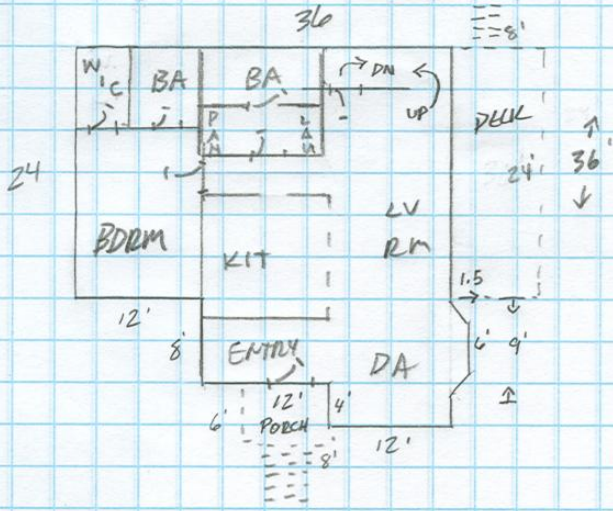 36
8'
W
I
C
BA
BA
DN
UP
DECK
PAN
LAU
24
24'
36'
BDRM
KIT
LV
RM
1.5
12'
8'
ENTRY
DA
6'
9'
6'
12'
PORCH
4'
8'
12'